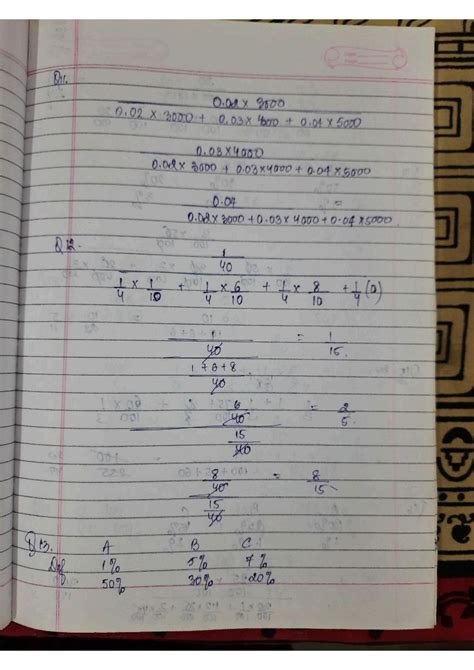 Q11.
0.02 × 3000
0.02 × 3000 + 0.03 × 4000 + 0.04 × 5000
0.03×4000
0.02 × 3000 + 0.03×4000 + 0.04 × 5000
0.04 =
0.02×3000 + 0.03 × 4000 + 0.04 × 5000
Q12.
1
40
1/4 × 1/10 + 1/4 × 6/10 + 1/4 × 8/10 + 1/4 (0)
1/40 = 1/15
1+6+8
40
6/40 = 2/5
15/40
8/40 = 8/15
15/40
Q13. A B C
Def 1% 5% 7%
50% 30% 20%